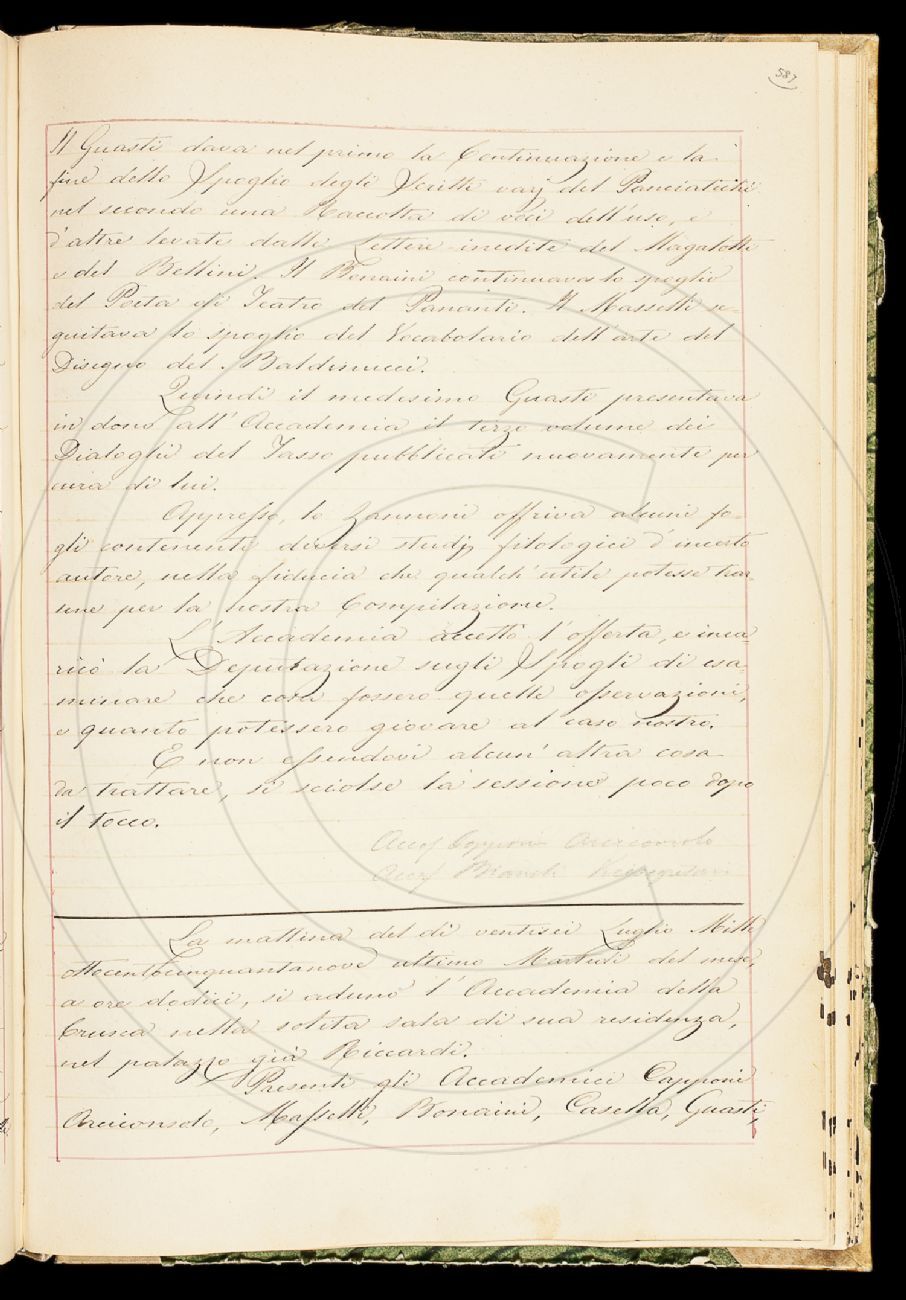 587
Il Guasti dava nel primo la Continuazione e la
fine dello Spoglio degli Scritti varj del Panciatichi
nel secondo una Raccolta di voci dell'uso, e
d'altre levate dalle Lettere inedite del Magalotti
e del Bellini. Il Bonaini continuava lo spoglio
del Poeta di Teatro del Pananti. Il Masselli se-
guitava lo spoglio del Vocabolario dell'arte del
Disegno del Baldinucci.
Quindi il medesimo Guasti presentava
in dono all'Accademia il terzo volume dei
Dialoghi del Tasso pubblicati nuovamente per
cura di lui.
Appresso, lo Zannoni offriva alcuni fo-
gli contenenti diversi studj filologici d'incerto
autore, nella fiducia che qualch'utile potesse trar-
sene per la nostra Compilazione.
L'Accademia accettò l'offerta, e inca-
ricò la Deputazione sugli Spogli di esa-
minare che cosa fossero quelle osservazioni,
e quanto potessero giovare al caso nostro.
E non essendovi alcun'altra cosa
da trattare, si sciolse la sessione poco dopo
il tocco.
Capponi Arciconsolo
Bianchi
La mattina del dì ventisei Luglio Mille
ottocentocinquantanove ultimo Martedì del mese,
a ore dodici, si adunò l'Accademia della
Crusca nella solita sala di sua residenza,
nel palazzo già Riccardi.
Presenti gli Accademici Capponi
Arciconsolo, Masselli, Bonaini, Casella, Guasti,